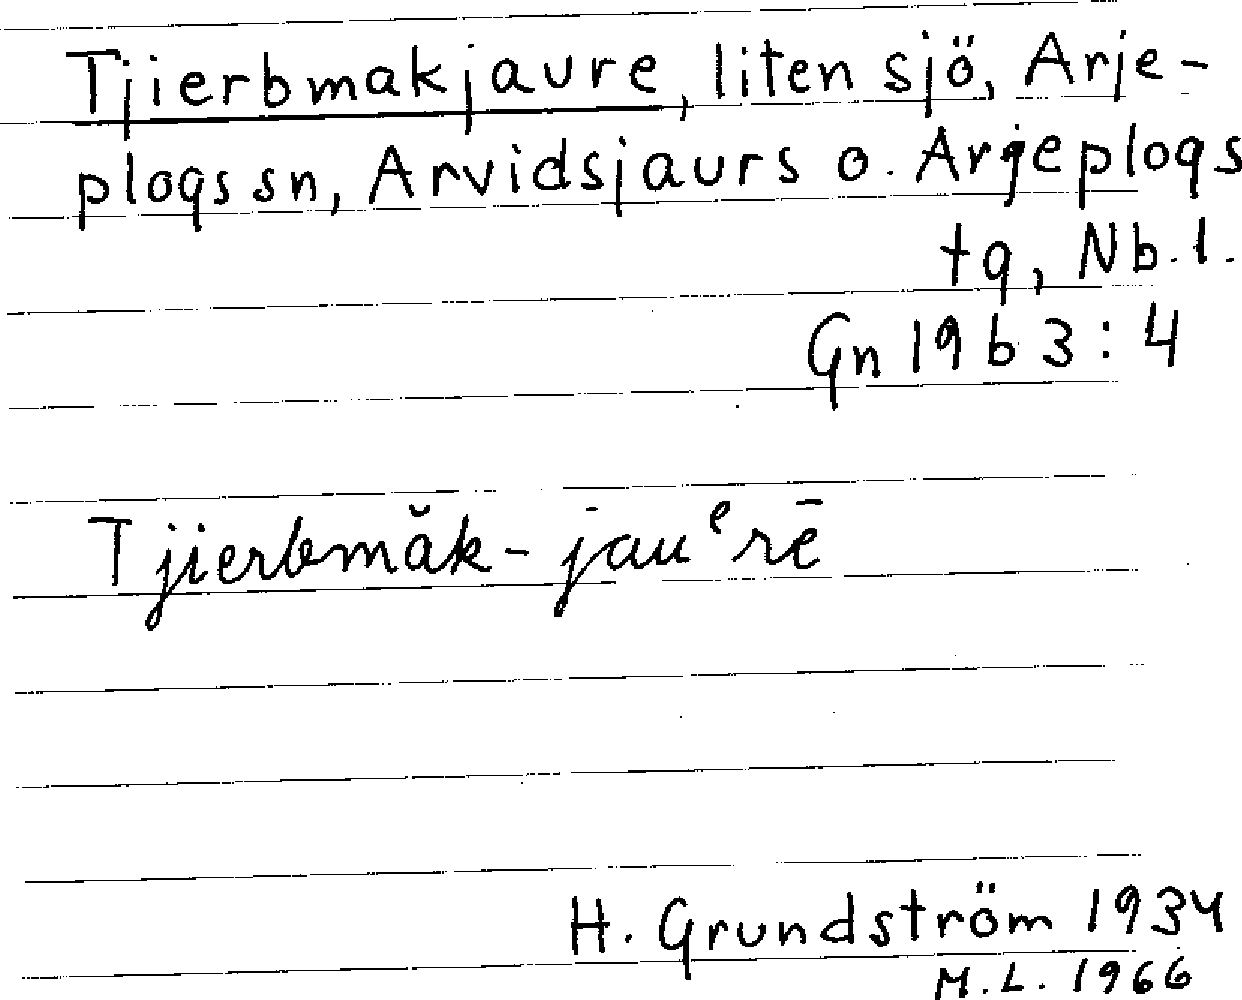 Tjierbmakjaure, liten sjö, Arje-
plogs sn, Arvidsjaurs o. Arjeplogs
tg, Nb. l.
Gn 1963:4
Tjierbmăk-jauᵉrē
H. Grundström 1934
M.L. 1966